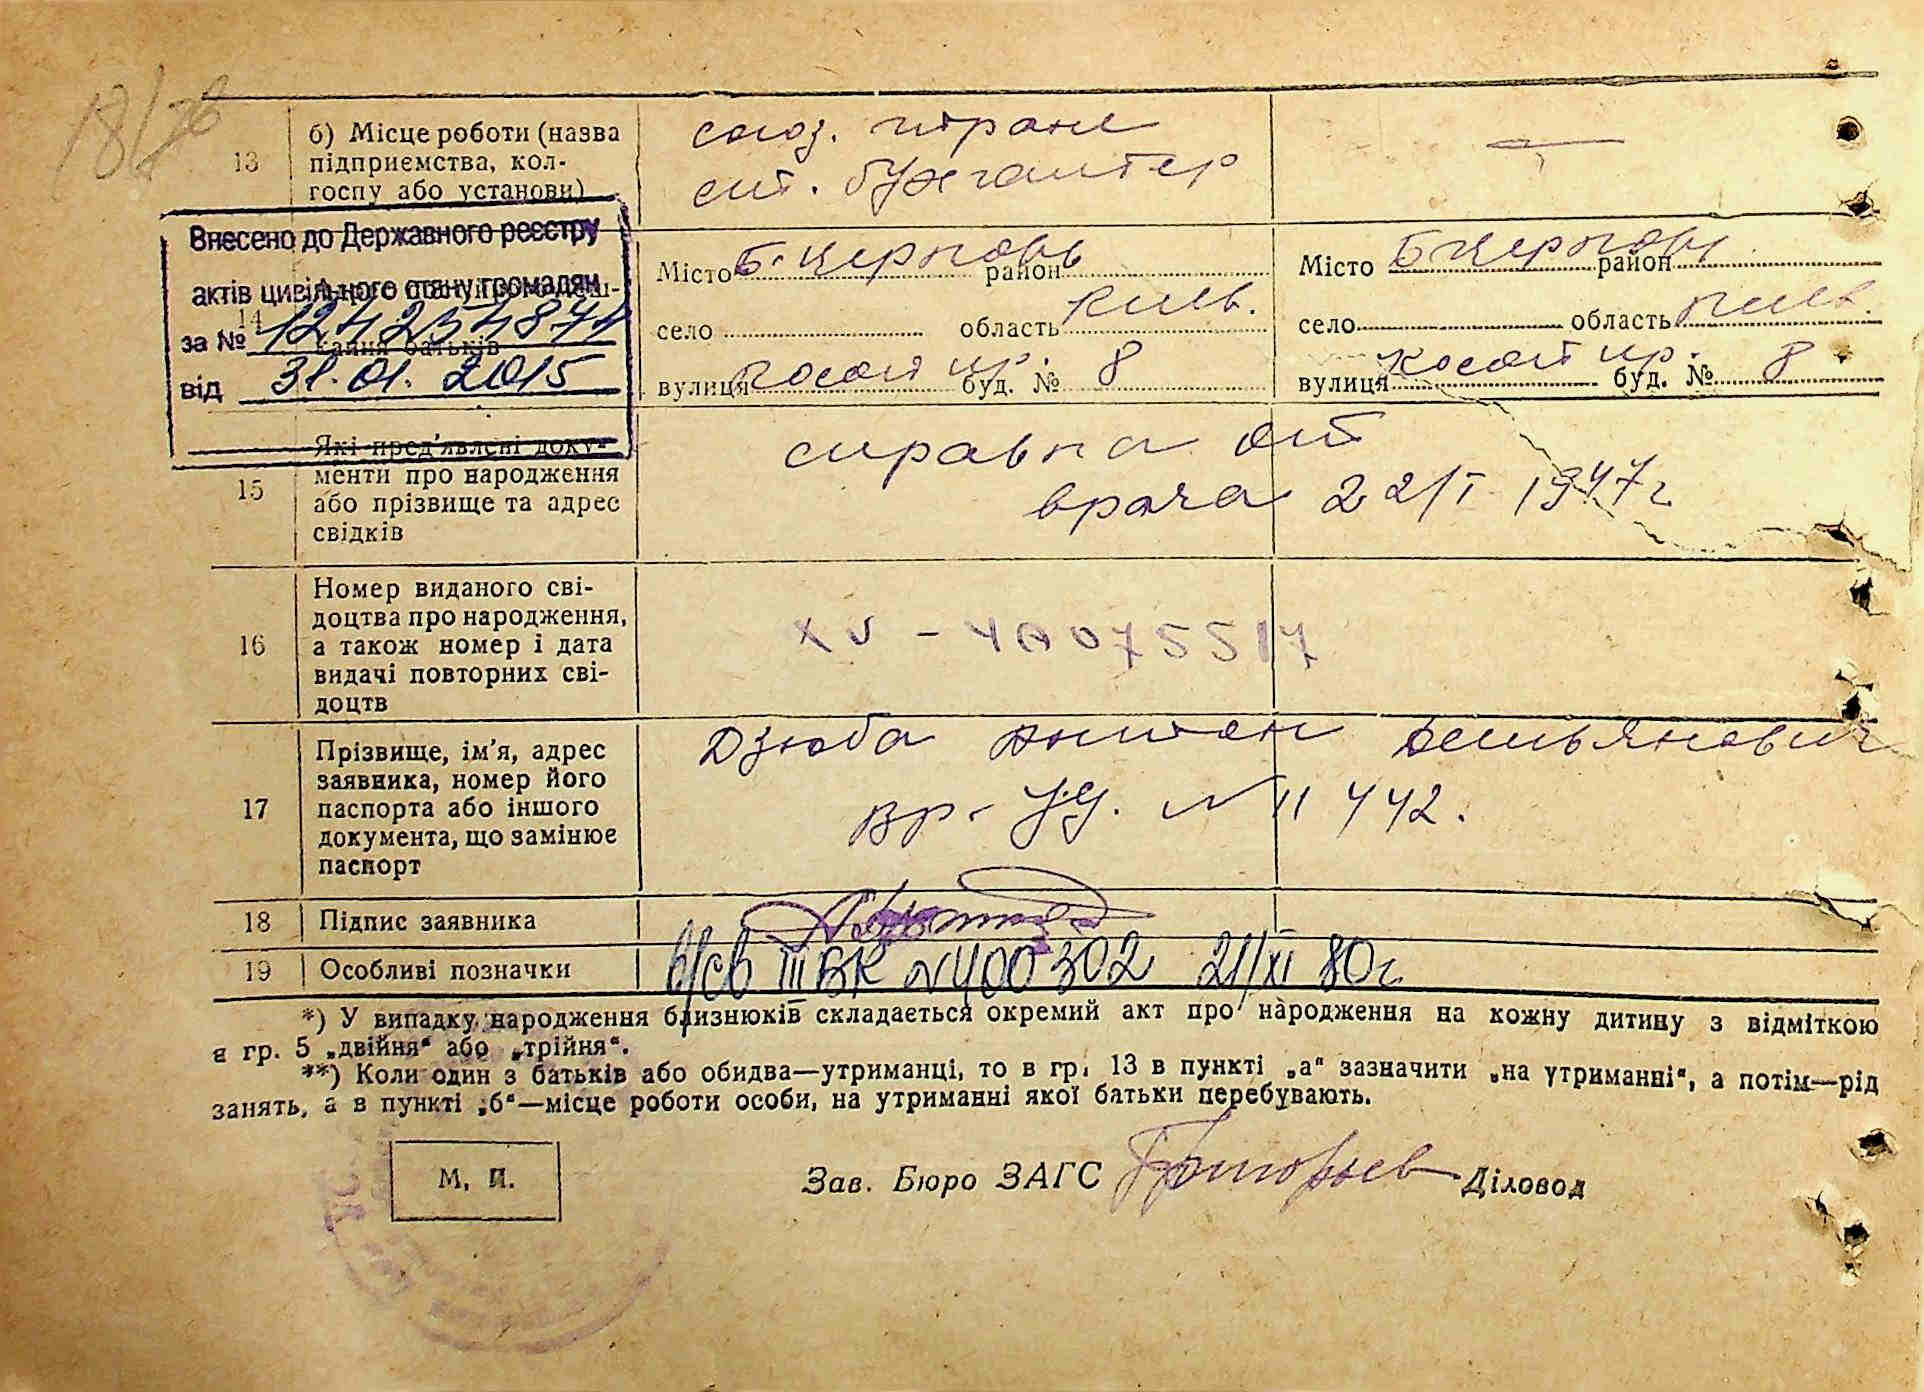 18/76
13
б) Місце роботи (назва
підприємства, кол-
госпу або установи)
союз. тране
ст. бухгалтер
Внесено до Державного реєстру
актів цивільного стану громадян
за №
від 31.01.2015
14
кання батьків
Місто Б. Церковь район
село область Київ.
вулиця буд. № 8
Місто Б Церковь район
село область
вулиця буд. № 8
15
Які пред'явлені доку-
менти про народження
або прізвище та адрес
свідків
справка от
врача 22/I 1947г
16
Номер виданого сві-
доцтва про народження,
а також номер і дата
видачі повторних сві-
доцтв
XV - ЧА 075517
17
Прізвище, ім'я, адрес
заявника, номер його
паспорта або іншого
документа, що замінює
паспорт
Дзюба Антон Демьянович
вр. уд. № 11442.
18
Підпис заявника
19
Особливі позначки
в/св III БК № 400302 21/XI 80г
*) У випадку народження близнюків складається окремий акт про народження на кожну дитину з відміткою
в гр. 5 „двійня“ або „трійня“.
**) Коли один з батьків або обидва—утриманці, то в гр. 13 в пункті „а“ зазначити „на утриманні“, а потім—рід
занять, а в пункті „б“—місце роботи особи, на утриманні якої батьки перебувають.
М. П.
Зав. Бюро ЗАГС Григорьев Діловод